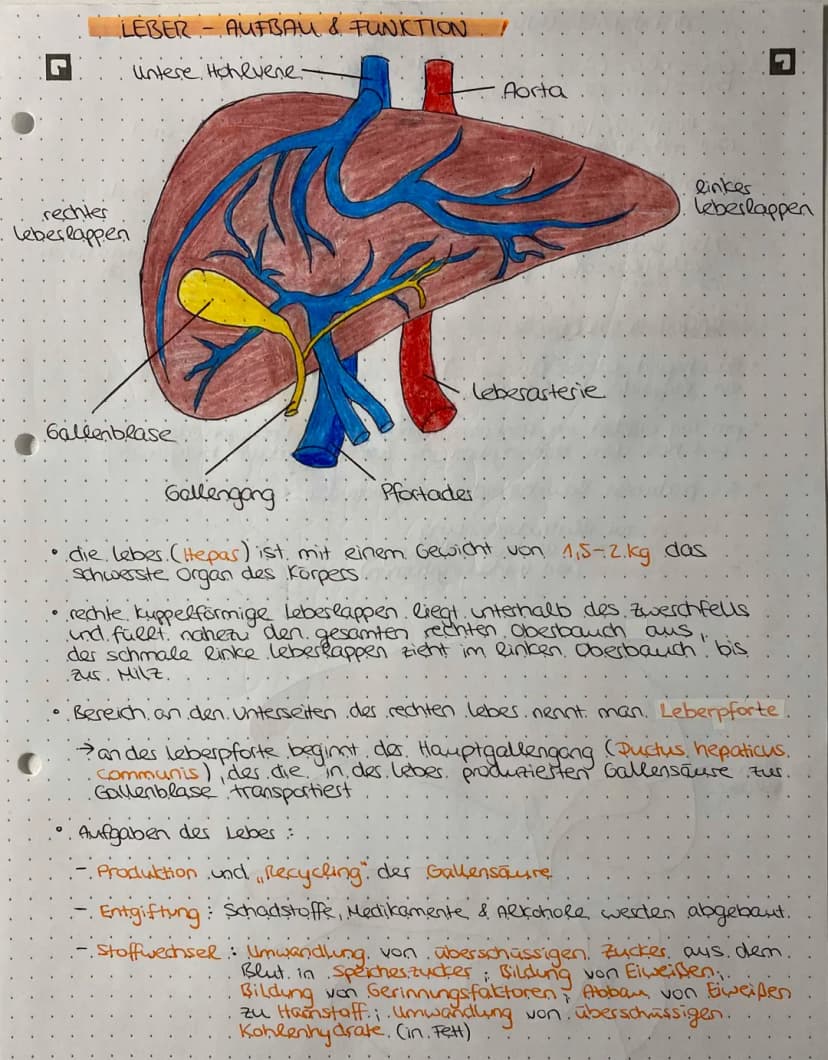 LEBER - AUFBAU & FUNKTION
untere Hohlvene
Aorta
rechter
Leberlappen
linker
Leberlappen
Leberarterie
Gallenblase
Gallengang
Pfortader
• die Leber (Hepar) ist mit einem Gewicht von 1,5-2 kg das
schwerste Organ des Körpers
• rechte kuppelförmige Leberlappen liegt unterhalb des Zwerchfells
und füllt nahezu den gesamten rechten Oberbauch aus,
der schmale linke Leberlappen zieht im linken Oberbauch bis
zur Milz.
• Bereich an den Unterseiten der rechten Leber nennt man Leberpforte
→ an der Leberpforte beginnt der Hauptgallengang (Ductus hepaticus
communis), der die in der Leber produzierten Gallensäure zur
Gallenblase transportiert
• Aufgaben der Leber:
- Produktion und „Recycling" der Gallensäure
- Entgiftung: Schadstoffe, Medikamente & Alkohole werden abgebaut.
- Stoffwechsel: Umwandlung von überschüssigen Zucker aus dem
Blut in Speicherzucker; Bildung von Eiweißen;
Bildung von Gerinnungsfaktoren; Abbau von Eiweißen
zu Harnstoff; Umwandlung von überschüssigen
Kohlenhydrate (in Fett)